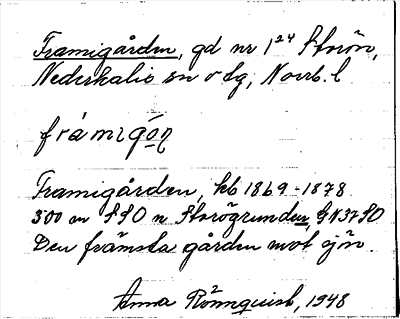 Framigården, gd nr 1²⁴ Storön,
Nederkalix sn o tg, Norrb. l
frámigǫ́n
Framigården, hb 1869-1878
500 m SSO n Storögrunden GV37SO
Den främsta gården mot sjön.
Anna Rönnquist, 1948